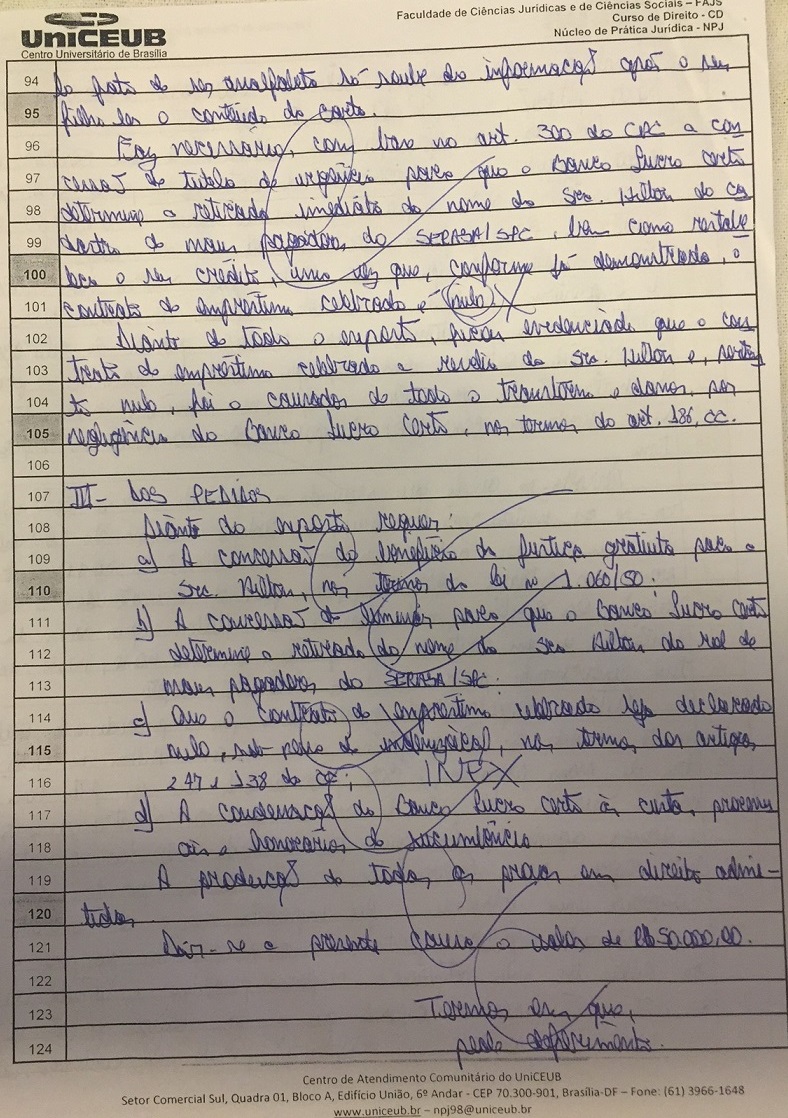 UniCEUB
Centro Universitário de Brasília
Faculdade de Ciências Jurídicas e de Ciências Sociais – FAJS
Curso de Direito - CD
Núcleo de Prática Jurídica - NPJ
94 do fato de ser analfabeto só soube da informação após o seu
95 filho ler o conteúdo da carta.
96 Faz necessário, com base no art. 300 do CPC a con
97 cessão de tutela de urgência para que o Banco Lucro Certo
98 determine a retirada imediata do nome do Sr. Hilton do ca
99 dastro de maus pagadores do SERASA/SPC, bem como restabe
100 leça o seu crédito, uma vez que, conforme já demonstrado, o
101 contrato de empréstimo celebrado é nulo. X
102 Diante de todo o exposto, ficou evidenciado que o con
103 trato de empréstimo celebrado a revelia do Sr. Hilton e, portan
104 to nulo, foi o causador de todo o transtorno e danos, por
105 negligência do Banco Lucro Certo, nos termos do art. 186, CC.
106
107 III- DOS PEDIDOS
108 Diante do exposto requer:
109 a) A concessão do benefício da justiça gratuita para o
110 Sr. Hilton, nos termos da lei nº 1.060/50.
111 b) A concessão de liminar para que o Banco Lucro Certo
112 determine a retirada do nome do Sr Hilton do rol de
113 maus pagadores do SERASA/SPC.
114 c) Que o contrato de empréstimo celebrado seja declarado
115 nulo, sob pena de indenização, nos termos dos artigos
116 247 e 138 do CC; INEX
117 d) A condenação do Banco Lucro Certo às custas processu
118 ais e honorários de sucumbência.
119 A produção de todas as provas em direito admi-
120 tidas.
121 Dar-se a presente causa o valor de R$ 50.000,00.
122
123 Termos em que,
124 pede deferimento.
Centro de Atendimento Comunitário do UniCEUB
Setor Comercial Sul, Quadra 01, Bloco A, Edifício União, 6º Andar - CEP 70.300-901, Brasília-DF – Fone: (61) 3966-1648
www.uniceub.br – npj98@uniceub.br